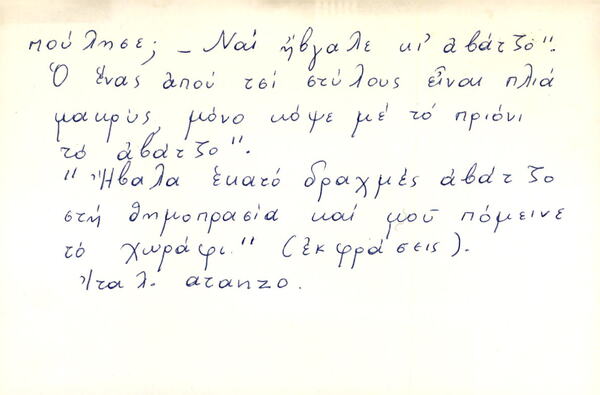 πούλησε; – Ναί ἤβγαλε κι' ἀβάτζο".
Ὁ ἕνας ἀπού τσί στύλους εἶναι πλιά
μακρύς, μόνο κόψε μέ τό πριόνι
τό ἀβάτζο".
"Ἤβαλα ἑκατό δραχμές ἀβάτζο
στή δημοπρασία καί μοῦ πόμεινε
τό χωράφι." (ἐκφράσεις).
Ἰταλ. avanzo.